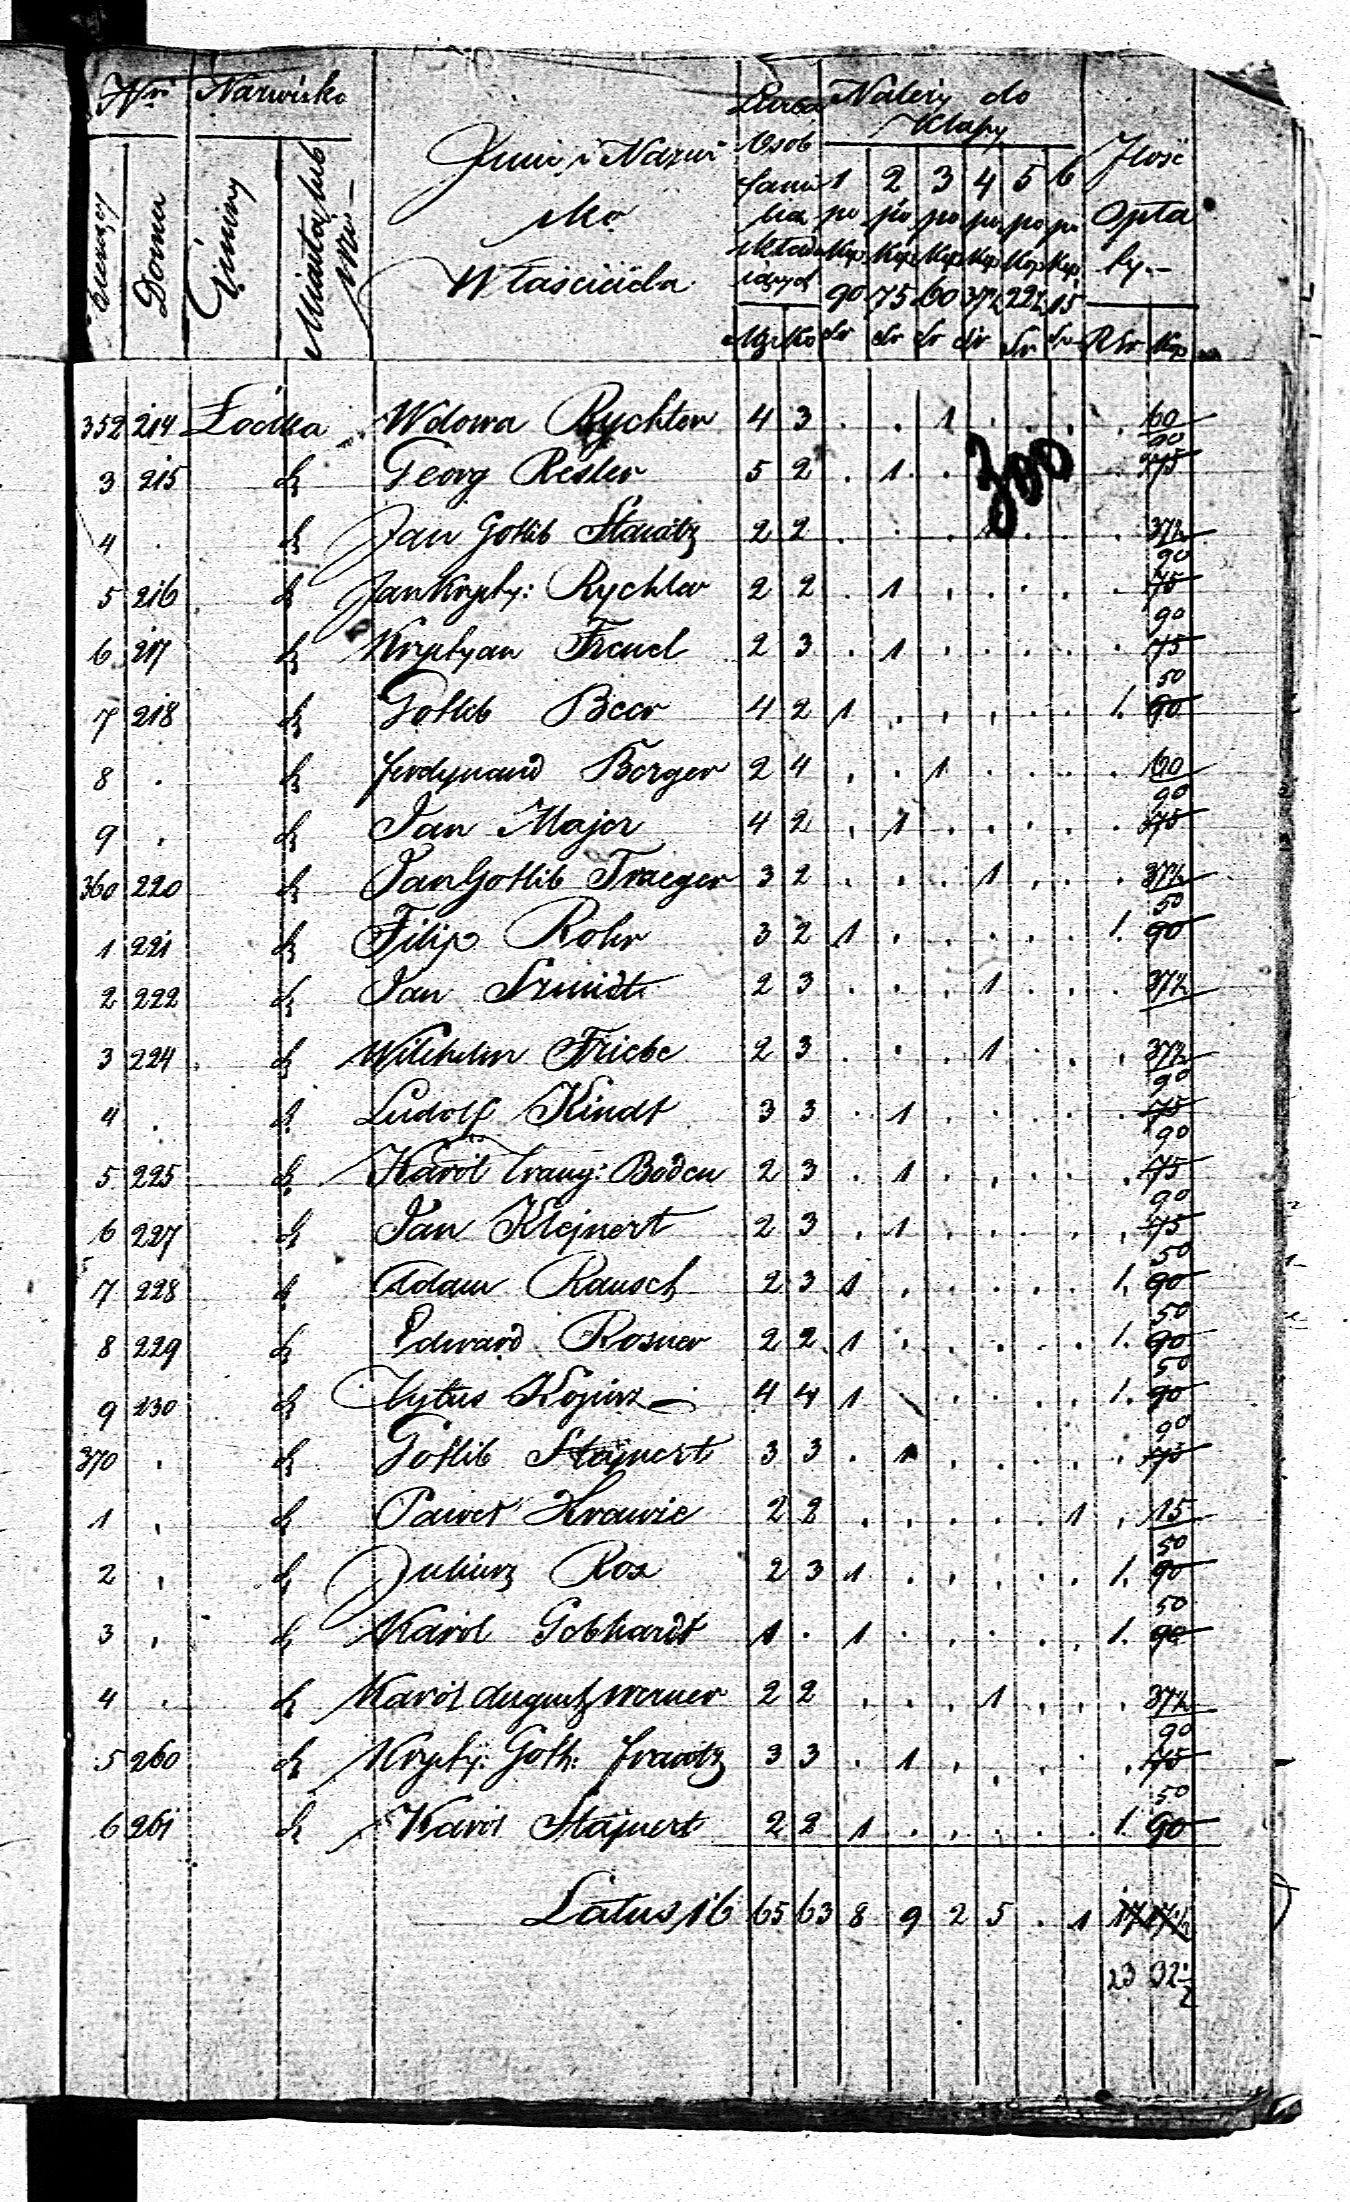 Nro Nazwisko
bieżący Domu Gminy Miasta lub Wsi
Imie i Nazwisko Właściciela
Liczba Osob familia składaiących
Męz Ko
Należy do Klassy
1 2 3 4 5 6
po po po po po po
Kop Kop Kop Kop Kop Kop
90 75 60 37½ 22½ 15
Sr Sr Sr Sr Sr Sr
Jlość Opłaty.
RSr Kop
300
352 214 Łodka Wdowa Rychter 4 3 . . 1 . . . . 60
3 215 d Georg Resler 5 2 . 1 . . 75 90
4 . d Jan Gotlib 2 2 . . . 1 . . . 37½
5 216 d Jan Krysty: Rychter 2 2 . 1 . . . . . 75 90
6 217 d Krystyan Frend 2 3 . 1 . . . . . 75 90
7 218 d Gotlib Beer 4 2 1 . . . . . 1. 90 50
8 . d ferdynand Berger 2 4 . . 1 . . . . 60
9 . d Jan Majer 4 2 . 1 . . . . . 75 90
360 220 d Jan Gotlib Traeger 3 2 . . . 1 . . . 37½
1 221 d Filip Rohr 3 2 1 . . . . . 1. 90 50
2 222 d Jan Szmidt 2 3 . . . 1 . . . 37½
3 224 d Wilchelm Friebe 2 3 . . . 1 . . . 37½
4 . d Ludolf Kindt 3 3 . 1 . . . . . 75 90
5 225 d Karol Traug: Boden 2 3 . 1 . . . . . 75 90
6 227 d Jan Klejnert 2 3 . 1 . . . . . 75 90
7 228 d Adam Rausch 2 3 1 . . . . . 1. 90 50
8 229 d Edward Rosner 2 2 1 . . . . . 1. 90 50
9 230 d Tytus 4 4 1 . . . . . 1. 90 50
370 . d Gotlib Stajnert 3 3 . 1 . . . . . 75 90
1 . d Paweł Krawic 2 2 . . . . . 1 . 15
2 . d Juliusz Rox 2 3 1 . . . . . 1. 90 50
3 . d Karol Gebhardt 1 . 1 . . . . . 1. 90 50
4 . d Karol August Werner 2 2 . . . 1 . . . 37½
5 260 d Krysty: Goth: frantz 3 3 . 1 . . . . . 75 90
6 261 d Karol Stajnert 2 2 1 . . . . . 1. 90 50
Latus 16 65 63 8 9 2 5 . 1 17 17½
23 92½